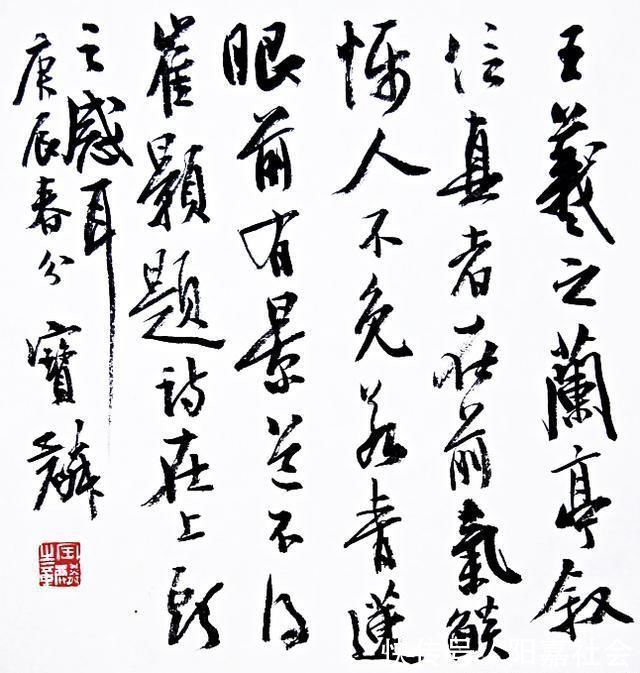 王羲之蘭亭叙
信真者在前氣燄
人不免若青蓮
眼前有景道不得
崔顥題詩在上頭
之感耳
庚辰春分 寶麟
快传号 阳嘉社会